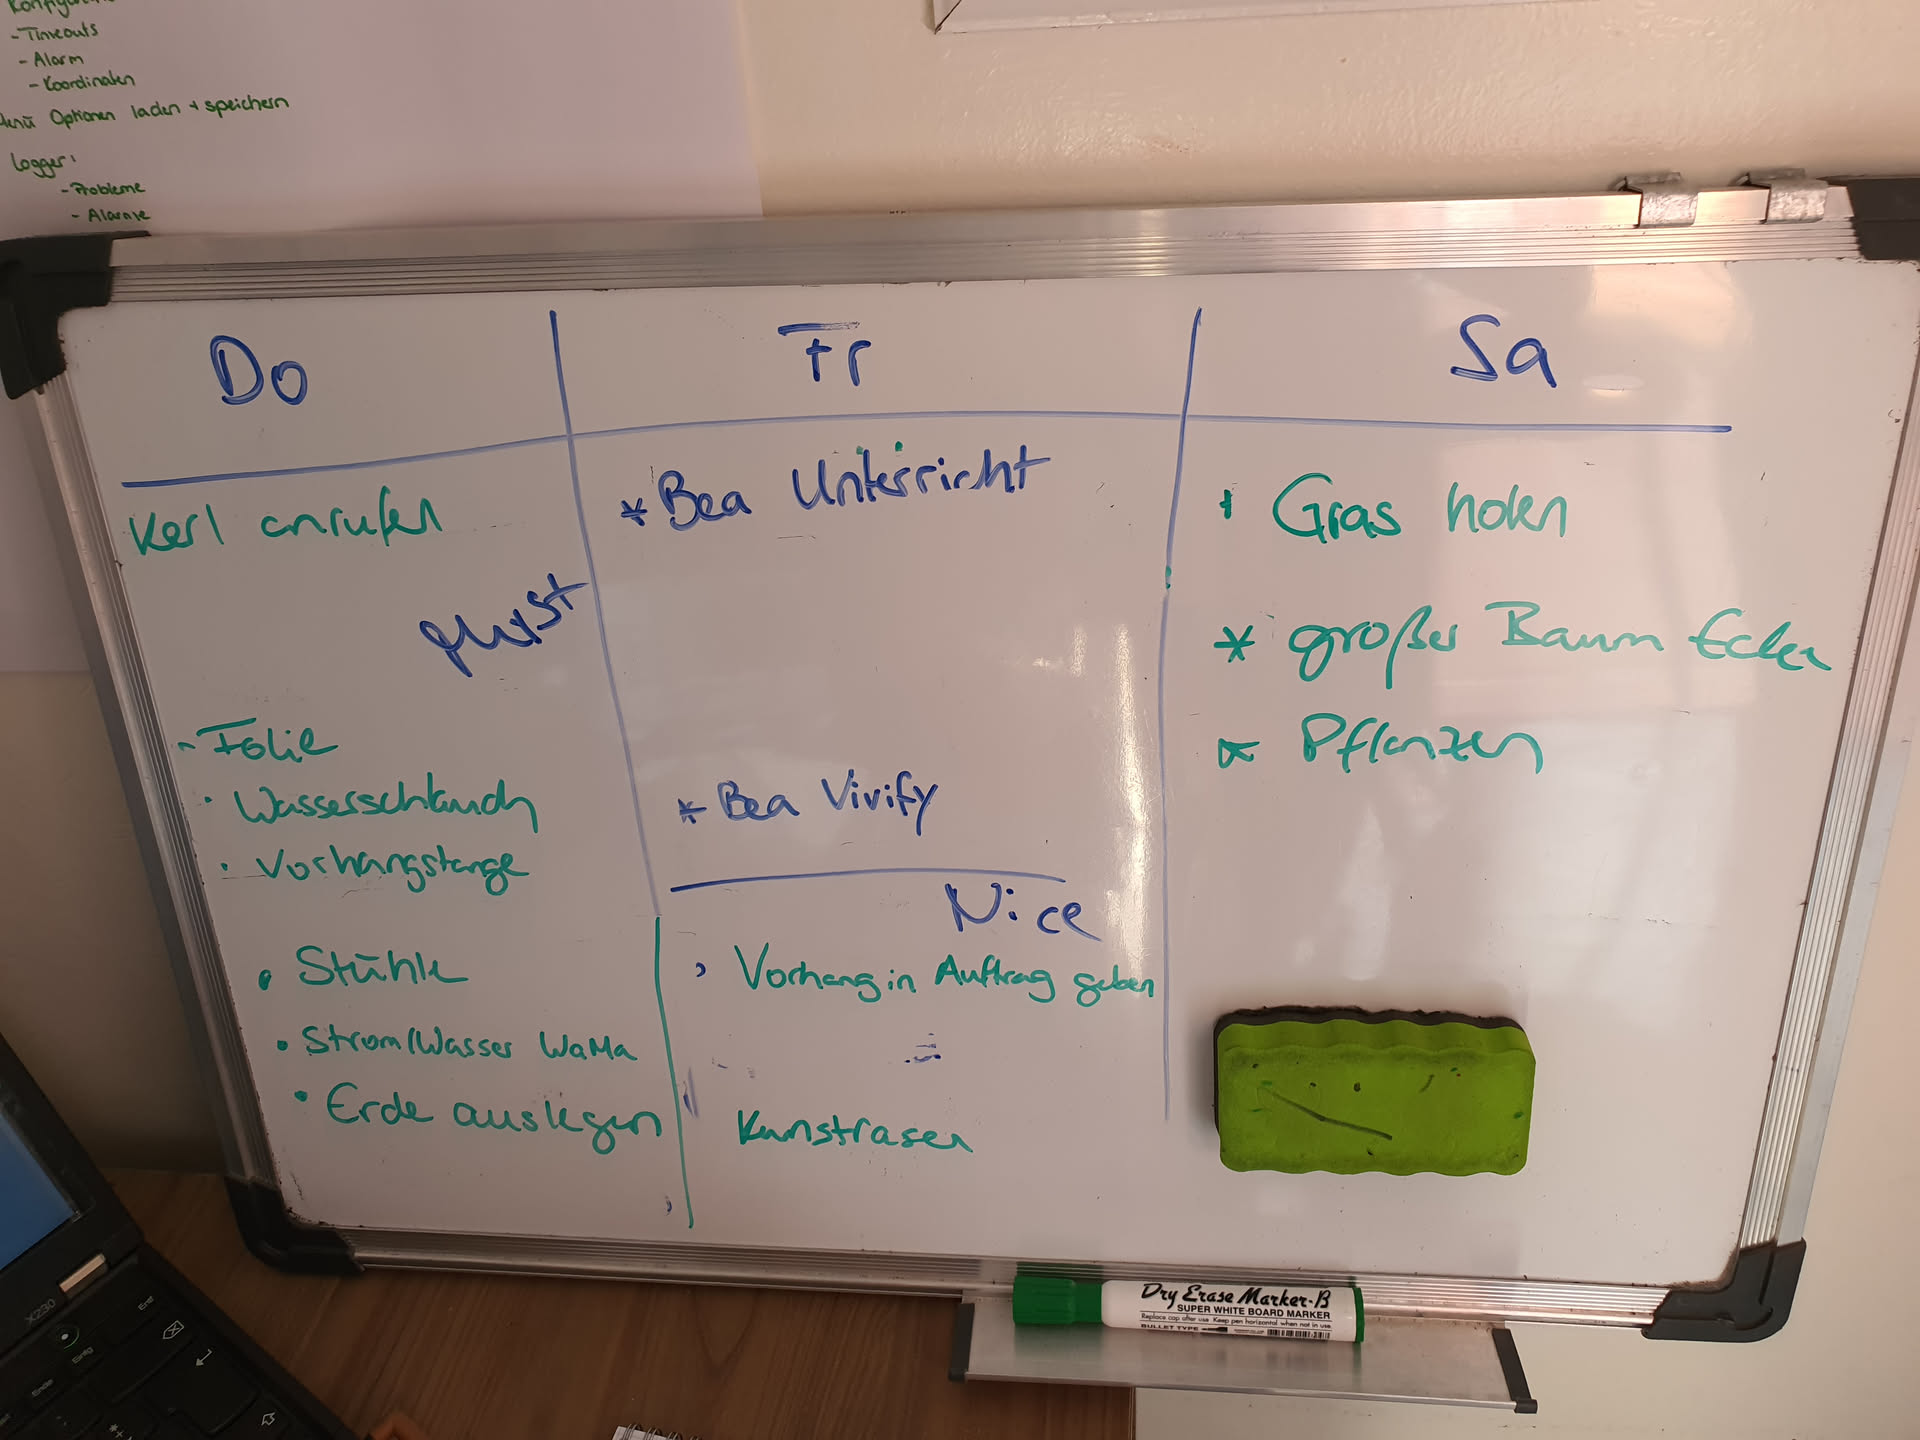 - Timeouts
- Alarm
- Koordinaten
Menü Optionen laden + speichern
Logger:
- Probleme
- Alarme
Do
Fr
Sa
Kerl anrufen
- Folie
· Wasserschlauch
· Vorhangstange
· Stühle
· Strom/Wasser WaMa
· Erde auslegen
* Bea Unterricht
* Bea Vivify
Nice
· Vorhang in Auftrag geben
Kunstrasen
* Gras holen
* großer Baum Ecke
* Pflanzen
Dry Erase Marker-B
SUPER WHITE BOARD MARKER
Replace cap after use Keep pen horizontal when not in use.
BULLET TYPE
X230
Entf
Einfg
Ende